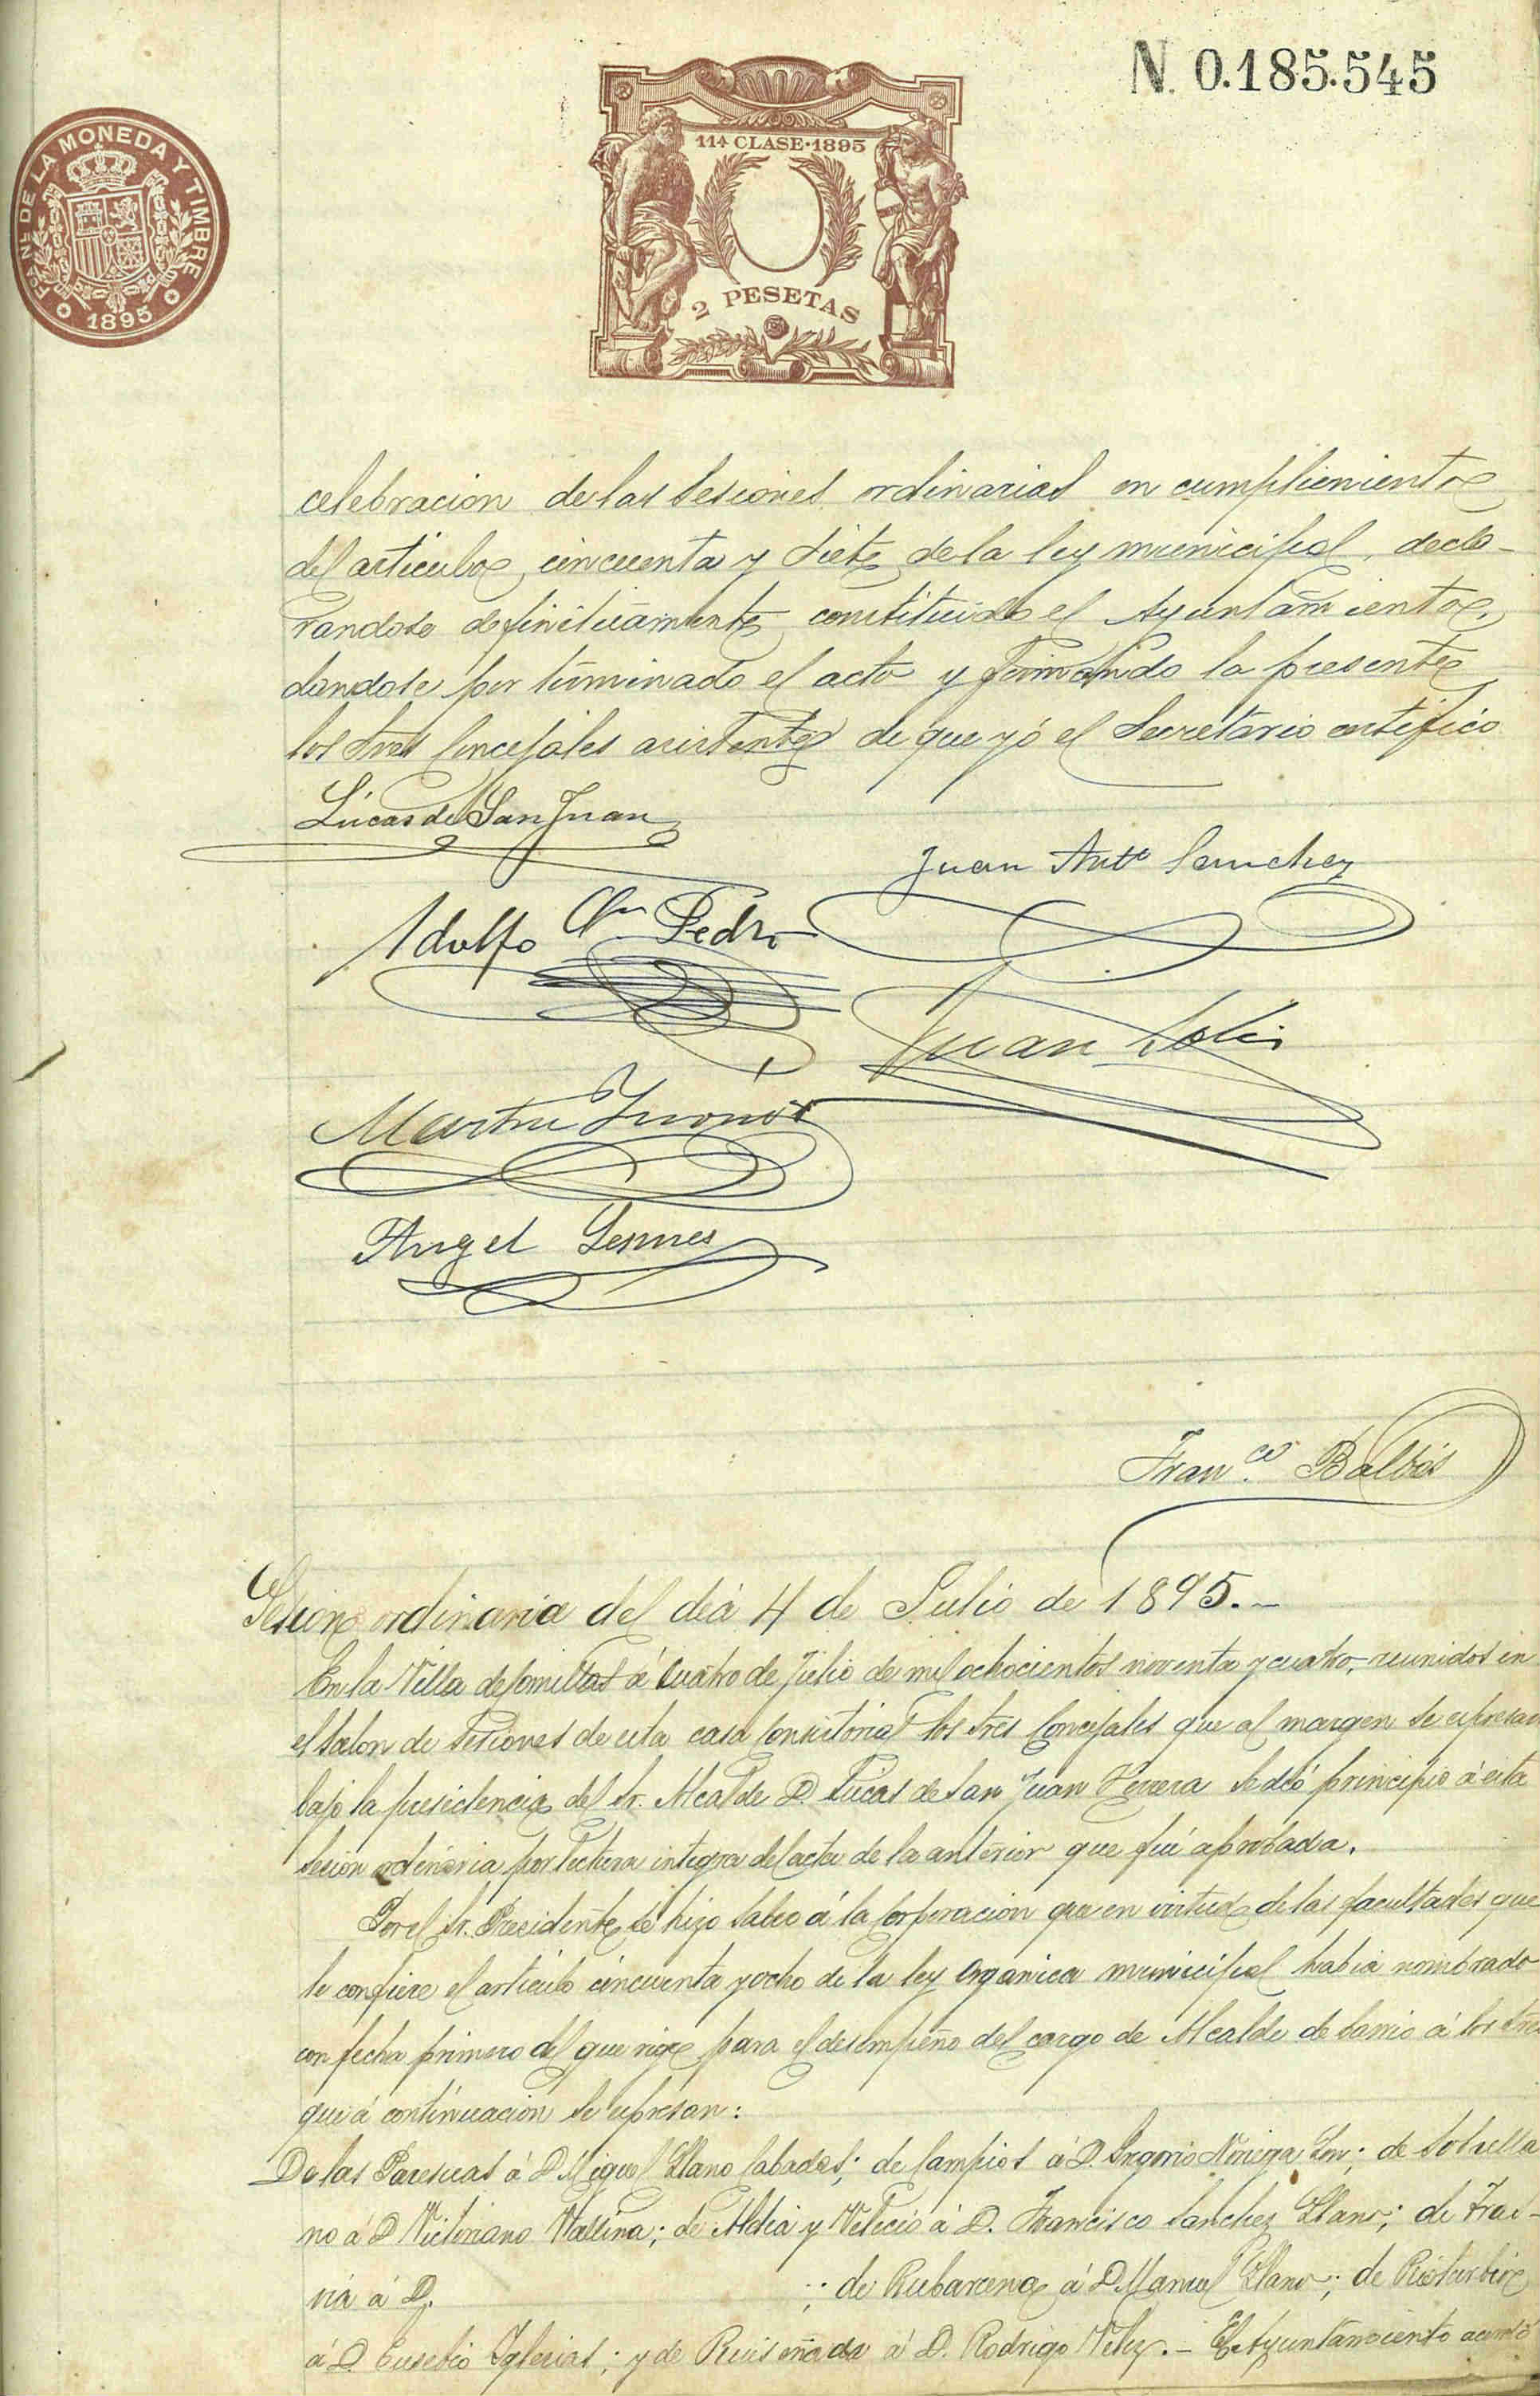 N. 0.185.545
FCA NAL DE LA MONEDA Y TIMBRE
1895
11ª CLASE·1895
2 PESETAS
celebracion de las sesiones ordinarias en cumplimiento
del articulo cincuenta y siete de la ley municipal, decla-
randose definitivamente constituido el Ayuntamiento,
dandose por terminado el acto y firmando la presente
los Sres Concejales asistentes de que yó el Secretario certifico
Lúcas de San Juan
Juan Antº Sanchez
Adolfo Pedro
Juan
Martin
Angel
Franco Balbás
Sesion ordinaria del dia 4 de Julio de 1895.-
En la Villa de Comillas á Cuatro de Julio de mil ochocientos noventa y cuatro, reunidos en
el Salon de Sesiones de esta casa Consistorial los Sres Concejales que al margen se espresan
bajo la presidencia del Sr. Alcalde D. Lucas de San Juan Herrera se dió principio á esta
sesion ordinaria por lectura integra del acta de la anterior que fué aprobada.
Por el Sr. Presidente se hizo saber á la Corporacion que en virtud de las facultades que
le confiere el articulo cincuenta y ocho de la ley Organica municipal habia nombrado
con fecha primero del que rige para el desempeño del cargo de Alcalde de barrio á los Sres
que á continuacion se espresan:
De las á D Miguel Llano Cabades; de Campios á D Noriega; de Sobrella
no á D Victoriano Vallina; de Aldea y Velecio á D. Francisco Sanchez Llano; de Tras-
via á D. ; de Rubarcena á D Manuel Llano; de Rioturbio
á D. Eusebio Iglesias; y de Ruiseñada á D. Rodrigo Velez.- El Ayuntamiento acordó